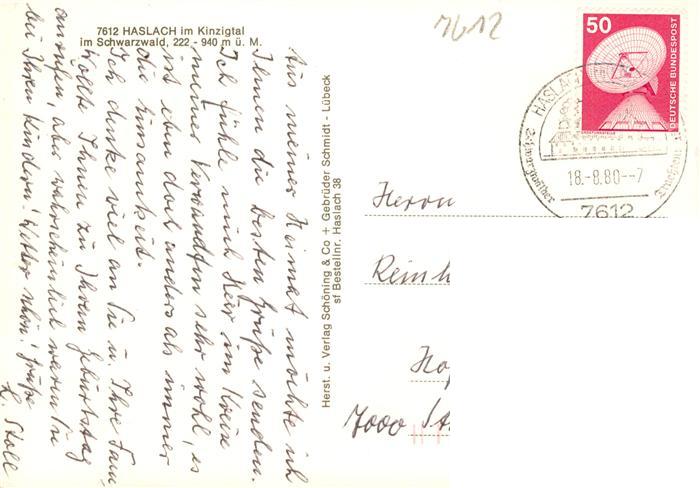 7612 HASLACH im Kinzigtal
im Schwarzwald, 222 - 940 m ü. M.
7612
50
DEUTSCHE BUNDESPOST
HASLACH
18.-8.80--7
7612
Aus meiner Heimat möchte ich
Ihnen die besten Grüße senden.
Ich fühle mich hier im Kreise
meiner Verwandten sehr wohl, es
ist eben doch anders als immer
die Einsamkeit.
Ich denke viel an Sie u. Ihre Fam,
wollte Ihnen zu Ihrem Geburtstag
anrufen, aber wahrscheinlich waren Sie
bei Ihren Kindern! Wetter schön! Grüße
L. Stoll
Herst. u. Verlag Schöning & Co + Gebrüder Schmidt - Lübeck
sf Bestellnr. Haslach 38
Herrn
Reinh
7000 St